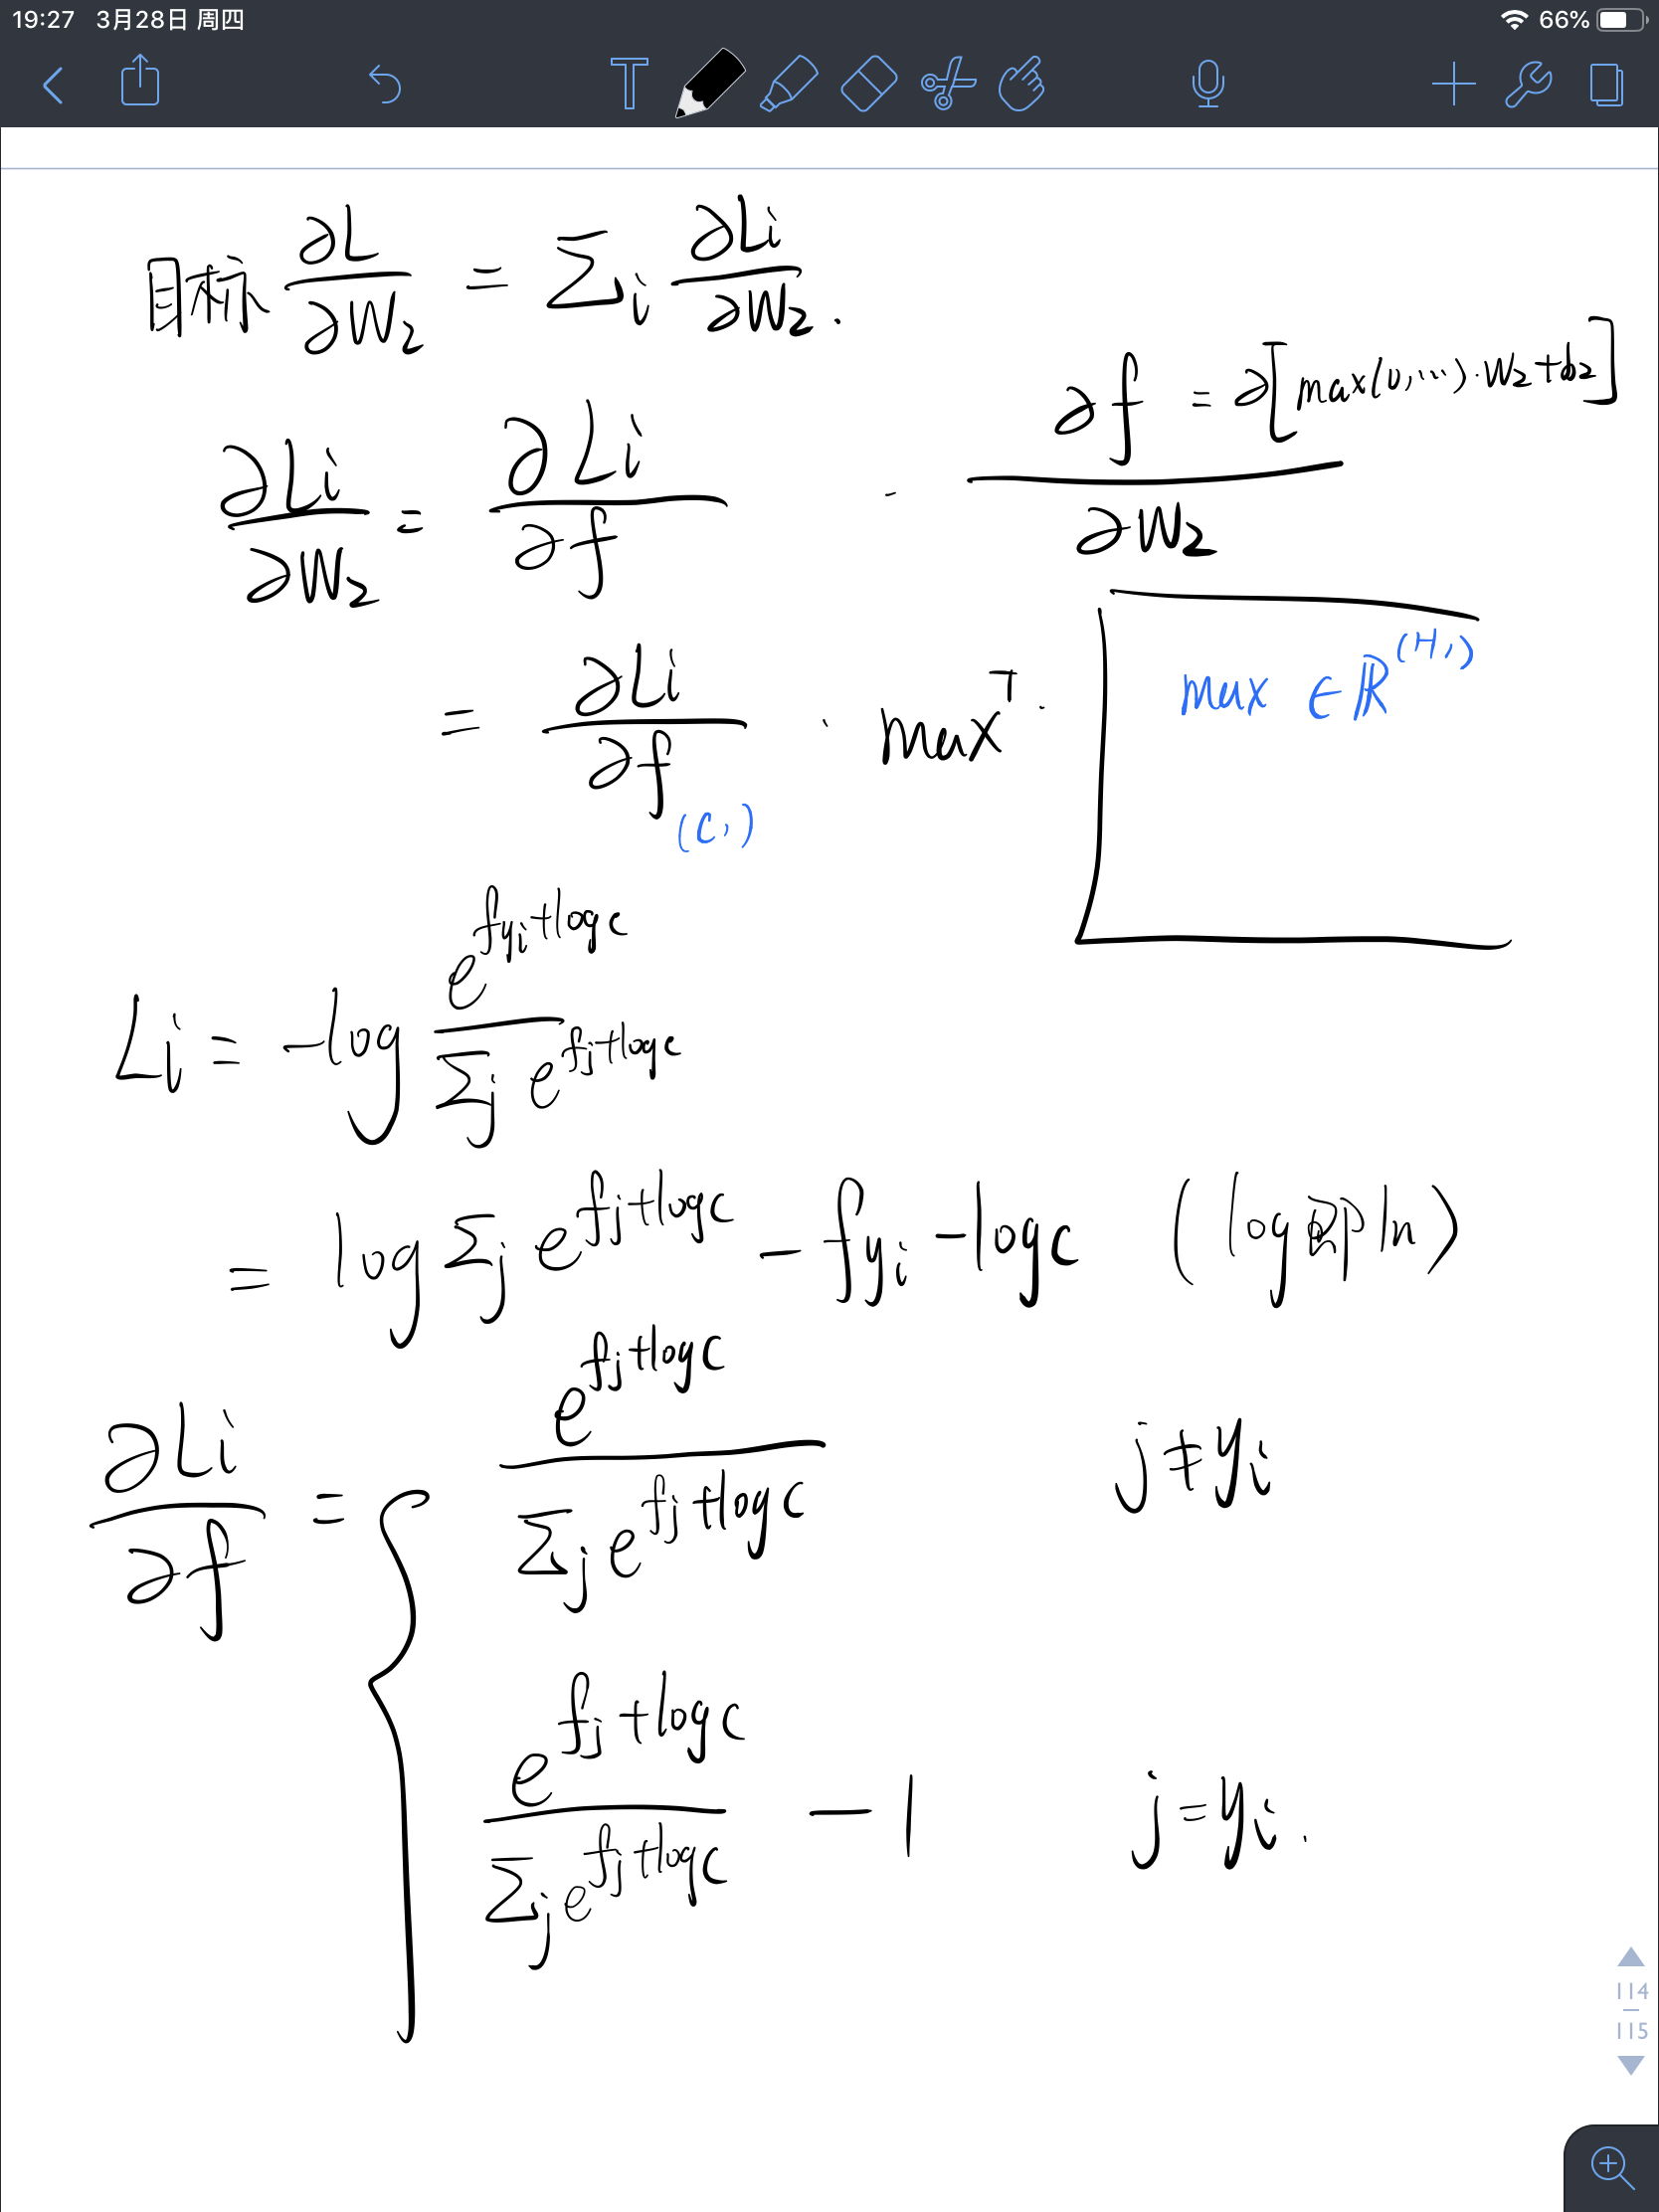 19:27 3月28日 周四 66%
T
目标 ∂L/∂W₂ = Σᵢ ∂Li/∂W₂.
∂Li/∂W₂ = ∂Li/∂f · ∂f/∂W₂ = ∂[max(0,…)·W₂+b₂]
= ∂Li/∂f · max^T ·
max ∈ ℝ^(H,)
(C,)
Li = -log e^(f_yi+logc) / Σj e^(fj+logc)
= log Σj e^(fj+logc) - f_yi - logc (log即ln)
∂Li/∂f = { e^(fj+logc) / Σj e^(fj+logc) j≠yi
e^(fj+logc) / Σj e^(fj+logc) - 1 j=yi.
114
115